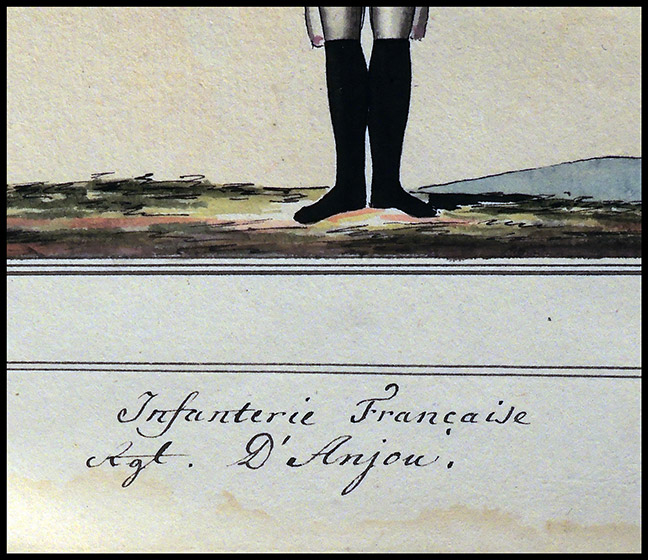 Infanterie Française
Rgt. D'Anjou.